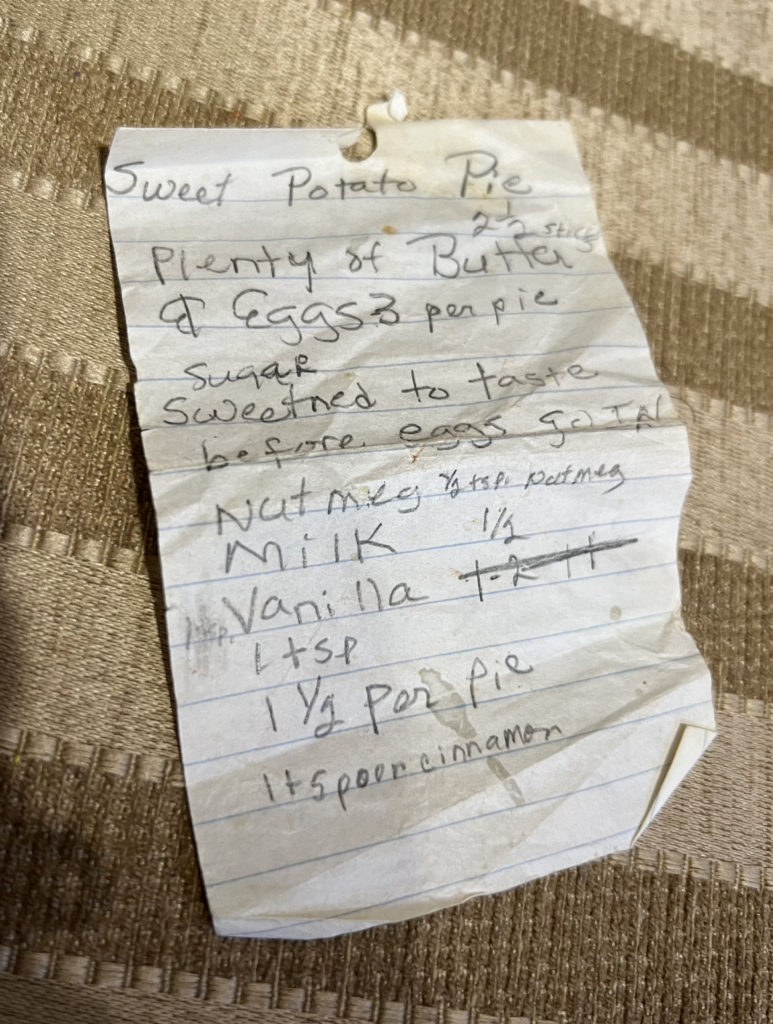 Sweet Potato Pie
2 1/2 sticks
Plenty of Butter
& Eggs 3 per pie
sugar
Sweetned to taste
before eggs go IN
Nutmeg 1/2 tsp. nutmeg
Milk 1/2
Vanilla
1 tsp
1 1/2 per pie
1 tsp cinnamon